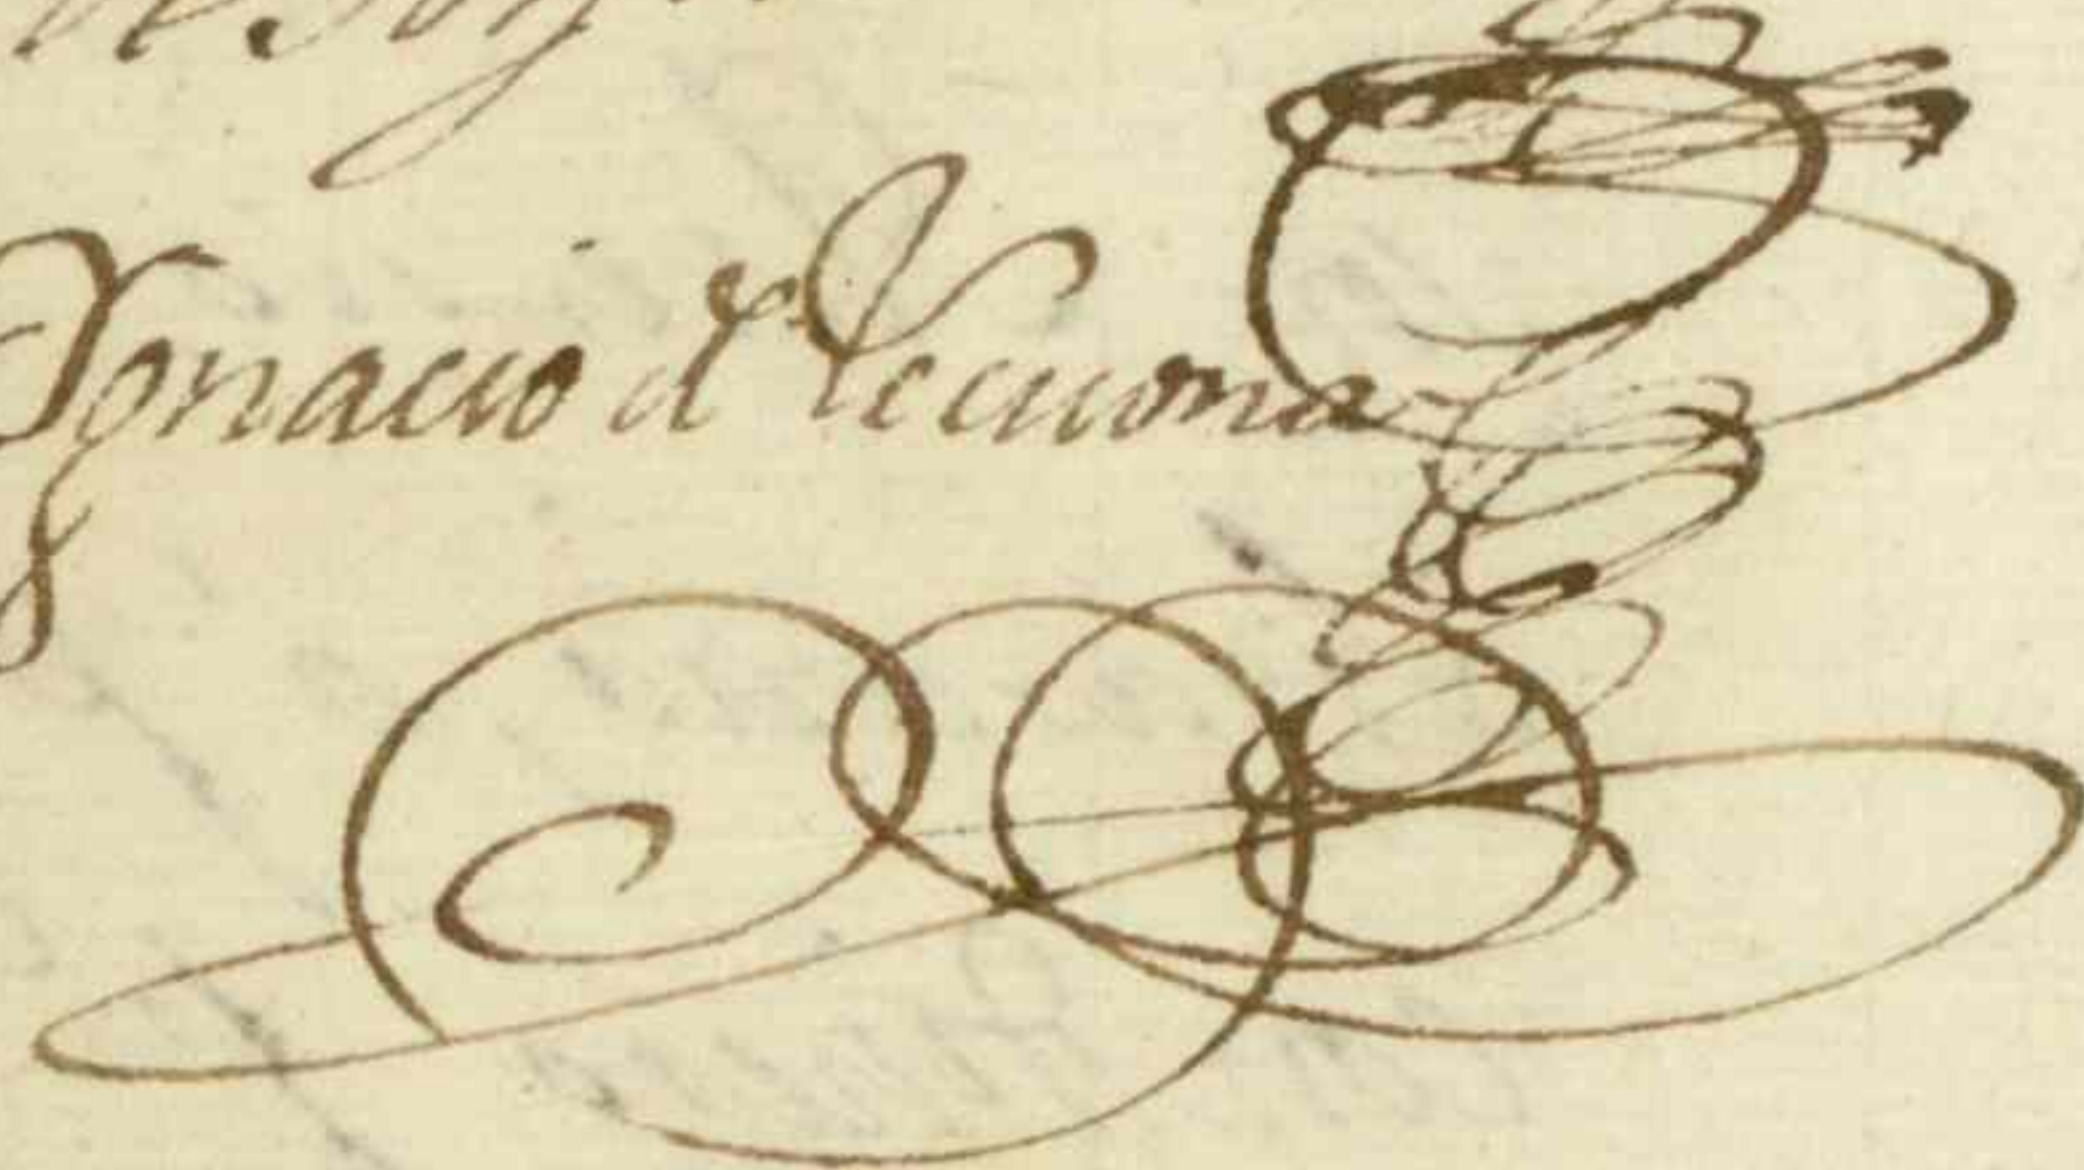 Ygnacio de Lecuona